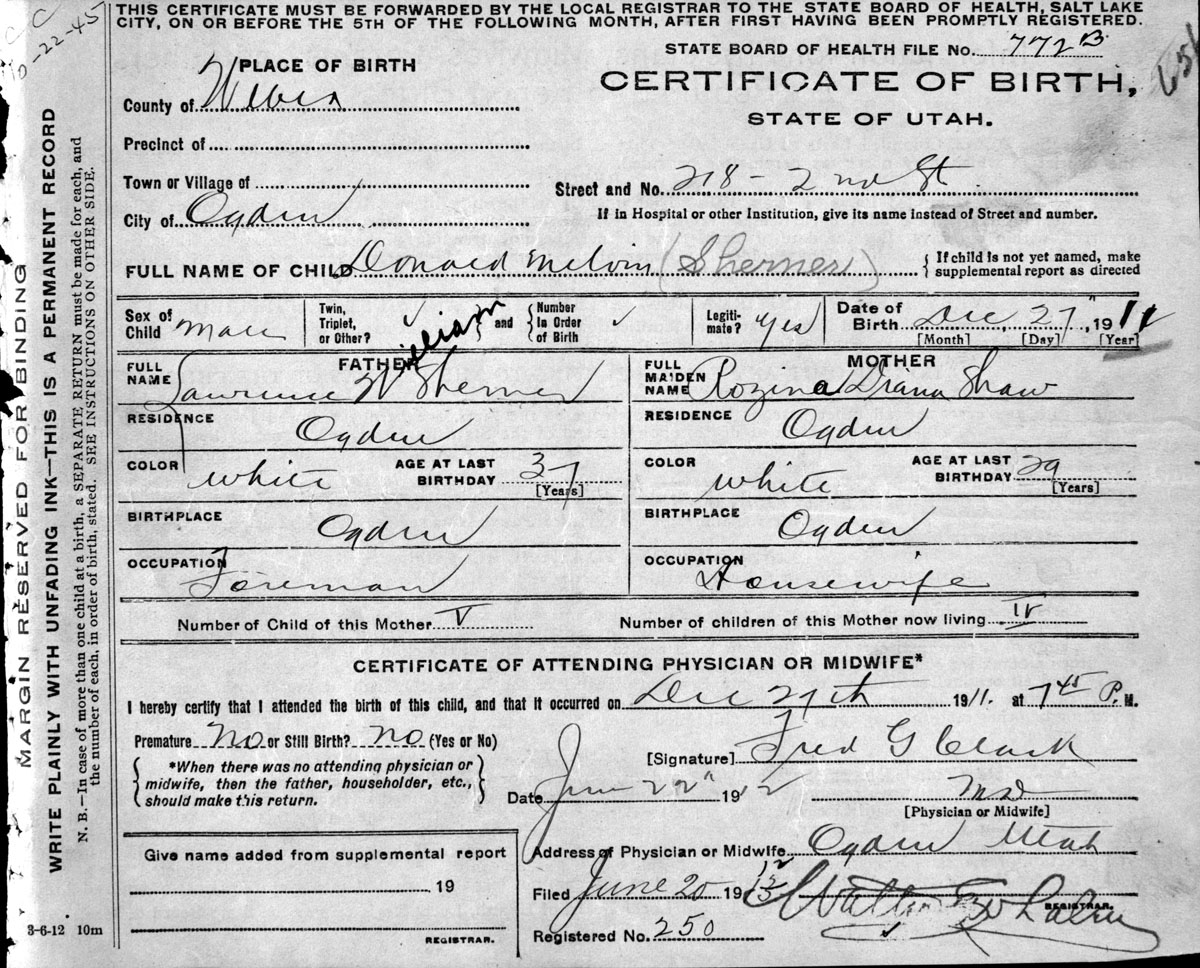 THIS CERTIFICATE MUST BE FORWARDED BY THE LOCAL REGISTRAR TO THE STATE BOARD OF HEALTH, SALT LAKE
CITY, ON OR BEFORE THE 5TH OF THE FOLLOWING MONTH, AFTER FIRST HAVING BEEN PROMPTLY REGISTERED.
10-22-45
STATE BOARD OF HEALTH FILE No. 772 B
PLACE OF BIRTH
CERTIFICATE OF BIRTH,
STATE OF UTAH.
County of Weber
Precinct of
Town or Village of
Street and No. 218 - 2nd St
City of Ogden
If in Hospital or other Institution, give its name instead of Street and number.
FULL NAME OF CHILD Donald Melvin (Sherner)
{ If child is not yet named, make supplemental report as directed
Sex of Child Male
Twin, Triplet, or Other? ✓ } and { Number In Order of Birth ✓
Legitimate? Yes
Date of Birth Dec 27", 1911
[Month] [Day] [Year]
FATHER
MOTHER
FULL NAME Lawrence W William Sherner
FULL MAIDEN NAME Rozina Diana Shaw
RESIDENCE Ogden
RESIDENCE Ogden
COLOR white AGE AT LAST BIRTHDAY 37 [Years]
COLOR white AGE AT LAST BIRTHDAY 29 [Years]
BIRTHPLACE Ogden
BIRTHPLACE Ogden
OCCUPATION Foreman
OCCUPATION Housewife
Number of Child of this Mother V
Number of children of this Mother now living IV
CERTIFICATE OF ATTENDING PHYSICIAN OR MIDWIFE*
I hereby certify that I attended the birth of this child, and that it occurred on Dec 27th 1911. at 7 45 P. M.
Premature No or Still Birth? No (Yes or No)
[Signature] Fred G Clark
*When there was no attending physician or midwife, then the father, householder, etc., should make this return.
Date June 22" 1912
MD
[Physician or Midwife]
Give name added from supplemental report
Address of Physician or Midwife Ogden Utah
19
Filed June 20 1912
REGISTRAR.
Registered No. 250
REGISTRAR.
3-6-12 10m
MARGIN RESERVED FOR BINDING
WRITE PLAINLY WITH UNFADING INK—THIS IS A PERMANENT RECORD
N. B.—In case of more than one child at a birth, a SEPARATE RETURN must be made for each, and
the number of each, in order of birth, stated. SEE INSTRUCTIONS ON OTHER SIDE.